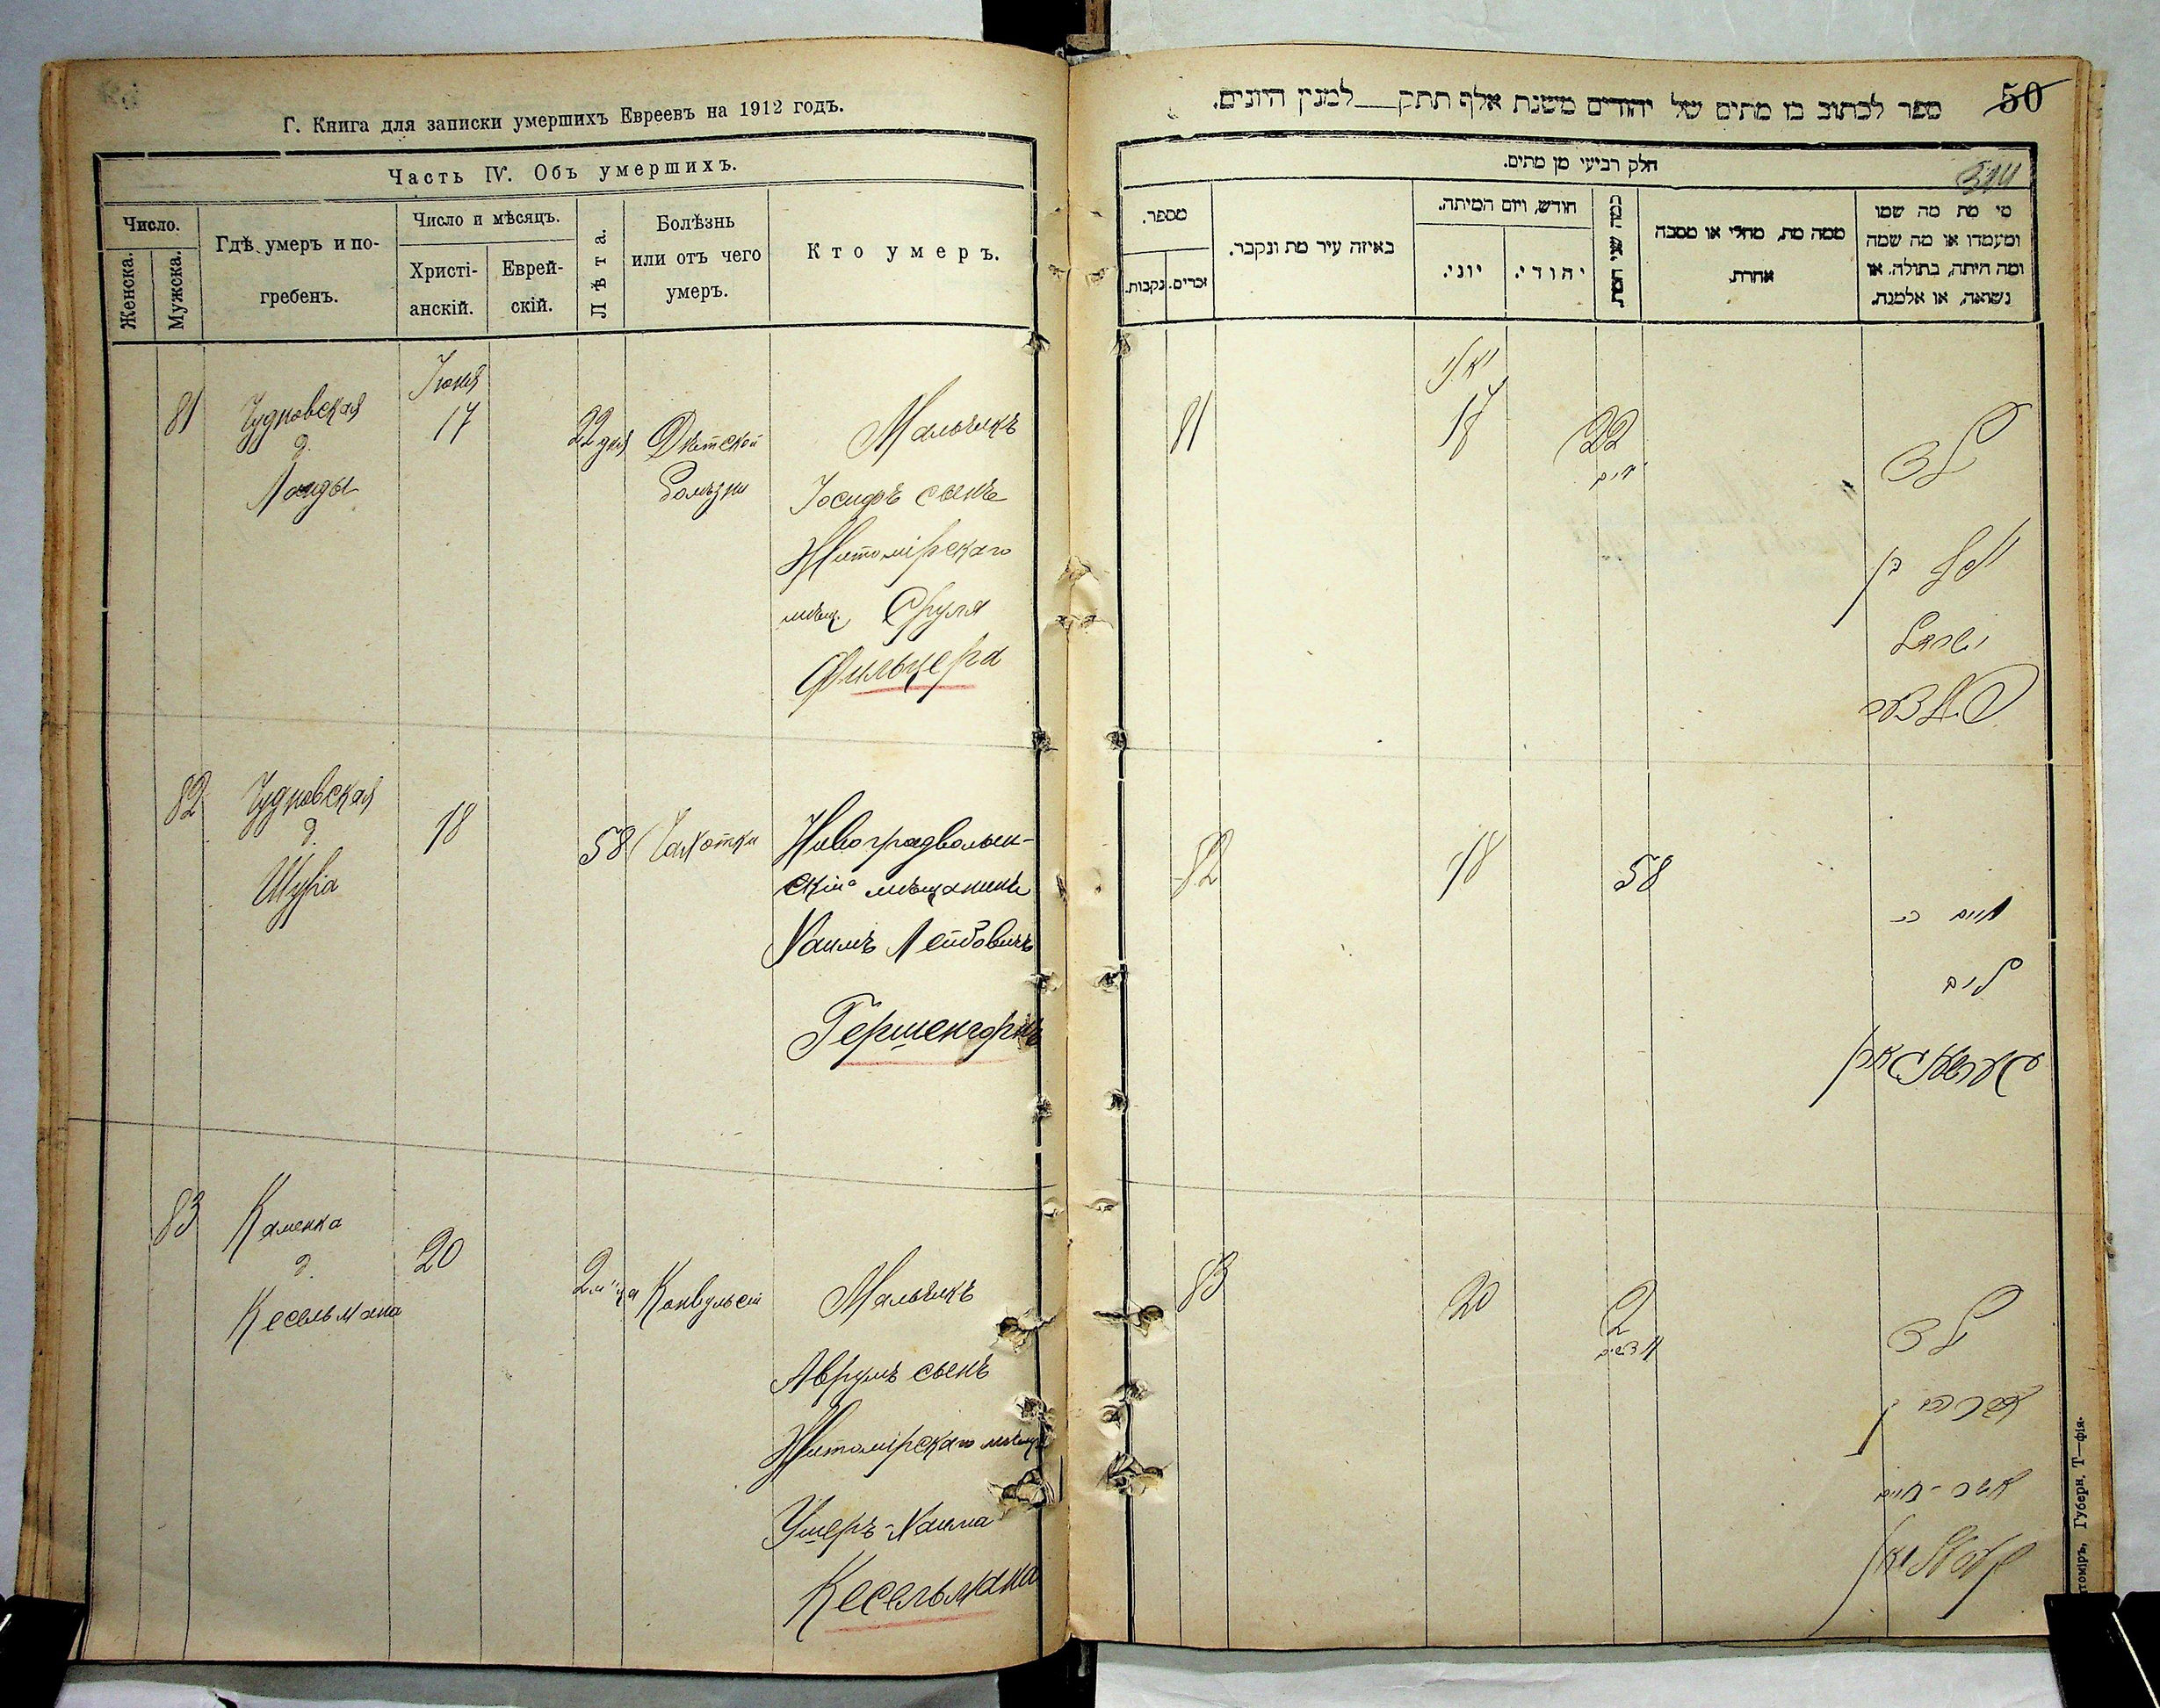 Г. Книга для записки умершихъ Евреевъ на 1912 годъ.
Часть IV. Объ умершихъ.
Число.
Женска.
Мужска.
Гдѣ умеръ и по-
гребенъ.
Число и мѣсяцъ.
Христі-
анскій.
Еврей-
скій.
Лѣта.
Болѣзнь
или отъ чего
умеръ.
Кто умеръ.
81
Чудновская
д.
Ланды
Іюня
17
22 дня
Дѣтской
болѣзни
Мальчикъ
Іосифъ сынъ
Житомірскаго
мѣщ. Сруля
Фильцера
82
Чудновская
д.
Шура
18
58
Чахотки
Новоградволын-
скій мѣщанинъ
Хаимъ Лейбовичъ
Гершенгорнъ
83
Каменка
д.
Кесельмана
20
2 м-ца
Конвульсіи
Мальчикъ
Аврумъ сынъ
Житомірскаго мѣщ.
Ушеръ-Хаима
Кесельмана
50
ספר לכתוב בו מתים של יהודים משנת אלף תתק למנין היונים.
חלק רביעי מן מתים.
314
מספר.
נקבות.
זכרים.
באיזה עיר מת ונקבר.
חודש, ויום המיתה.
יוני.
יהודי.
כמה שני המת.
ממה מת, מחלי או מסבה
אחרת.
מי מת מה שמו
ומעמדו או מה שמה
ומה היתה, בתולה. או
נשואה, או אלמנה.
81
יוני
17
22
ימים
ילד
יוסף בן
ישראל
פילצער
82
18
58
חיים ב״ר
ליב
הערשענהארן
83
20
2
חדשים
ילד
אברהם ב
אשר-חיים
קעסעלמאן
томіръ, Губерн. Т—фія.